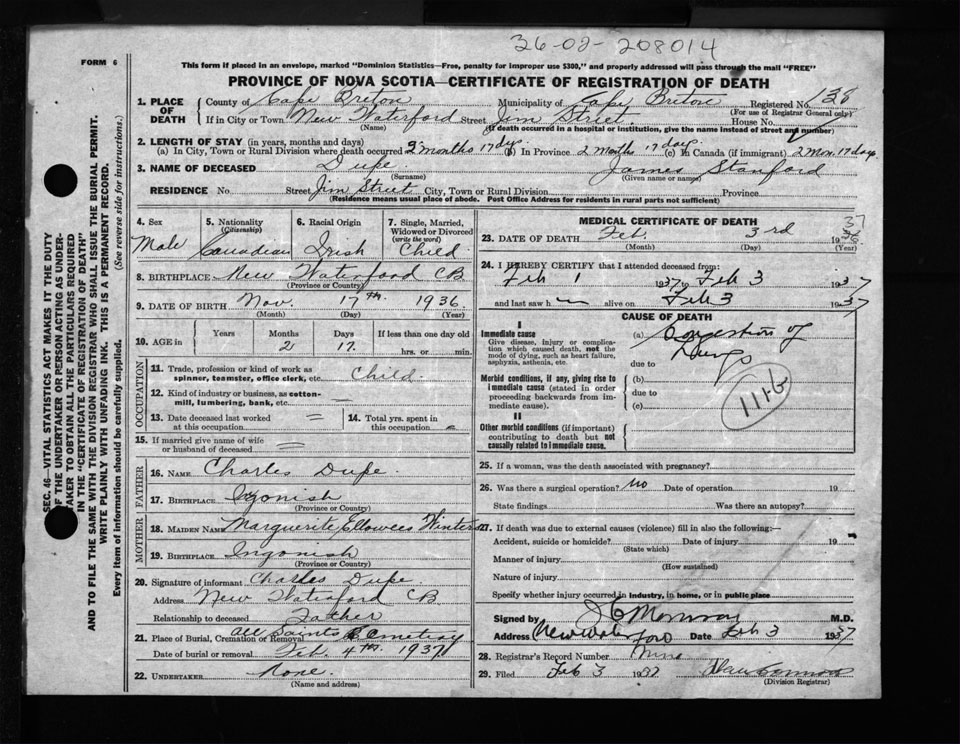 36-02-208014
FORM 6
This form if placed in an envelope, marked "Dominion Statistics—Free, penalty for improper use $300," and properly addressed will pass through the mail "FREE"
PROVINCE OF NOVA SCOTIA—CERTIFICATE OF REGISTRATION OF DEATH
1. PLACE OF DEATH County of Cape Breton Municipality of Cape Breton Registered No. 138
(For use of Registrar General only)
If in City or Town New Waterford Street Jim Street House No.
(Name) (If death occurred in a hospital or institution, give the name instead of street and number)
2. LENGTH OF STAY (in years, months and days)
(a) In City, Town or Rural Division where death occurred 2 months 17 days (b) In Province 2 months 17 days (c) In Canada (if immigrant) 2 Mon. 17 days
3. NAME OF DECEASED Dupe James Stanford
(Surname) (Given name or names)
RESIDENCE No. Street Jim Street City, Town or Rural Division Province
(Residence means usual place of abode. Post Office Address for residents in rural parts not sufficient)
4. Sex 5. Nationality (Citizenship) 6. Racial Origin 7. Single, Married, Widowed or Divorced (write the word)
Male Canadian Irish Child
8. BIRTHPLACE New Waterford CB
(Province or Country)
9. DATE OF BIRTH Nov. 17th. 1936
(Month) (Day) (Year)
10. AGE in Years Months Days If less than one day old
2 17. hrs. or min.
OCCUPATION
11. Trade, profession or kind of work as spinner, teamster, office clerk, etc. Child.
12. Kind of industry or business, as cotton-mill, lumbering, bank, etc.
13. Date deceased last worked at this occupation 14. Total yrs. spent in this occupation
15. If married give name of wife or husband of deceased
FATHER
16. NAME Charles Dupe.
17. BIRTHPLACE Ingonish
(Province or Country)
MOTHER
18. MAIDEN NAME Marguerite Winters
19. BIRTHPLACE Ingonish
(Province or Country)
20. Signature of informant Charles Dupe.
Address New Waterford CB
Relationship to deceased Father
21. Place of Burial, Cremation or Removal All Saints Cemetery
Date of burial or removal Feb. 4th. 1937
22. UNDERTAKER None.
(Name and address)
MEDICAL CERTIFICATE OF DEATH
23. DATE OF DEATH Feb. 3rd 1937
(Month) (Day) (Year)
24. I HEREBY CERTIFY that I attended deceased from:
Feb 1 1937 to Feb 3 1937
and last saw h alive on Feb 3 1937
CAUSE OF DEATH
I
Immediate cause
Give disease, injury or complication which caused death, not the mode of dying, such as heart failure, asphyxia, asthenia, etc.
(a) Congestion of Lungs
due to
Morbid conditions, if any, giving rise to immediate cause (stated in order proceeding backwards from immediate cause).
(b)
due to
(c)
111-b
II
Other morbid conditions (if important) contributing to death but not causally related to immediate cause.
25. If a woman, was the death associated with pregnancy?
26. Was there a surgical operation? No Date of operation 19
State findings Was there an autopsy?
27. If death was due to external causes (violence) fill in also the following:—
Accident, suicide or homicide? Date of injury 19
(State which)
Manner of injury
(How sustained)
Nature of injury
Specify whether injury occurred in industry, in home, or in public place
Signed by M.D.
Address New Waterford Date Feb 3 1937
28. Registrar's Record Number Nine
29. Filed Feb 3 1937
(Division Registrar)
SEC. 46—VITAL STATISTICS ACT MAKES IT THE DUTY
OF THE UNDERTAKER OR PERSON ACTING AS UNDER-
TAKER TO OBTAIN ALL THE PARTICULARS REQUIRED
IN THE "CERTIFICATE OF REGISTRATION OF DEATH"
AND TO FILE THE SAME WITH THE DIVISION REGISTRAR WHO SHALL ISSUE THE BURIAL PERMIT.
WRITE PLAINLY WITH UNFADING INK. THIS IS A PERMANENT RECORD.
Every item of Information should be carefully supplied. (See reverse side for instructions.)